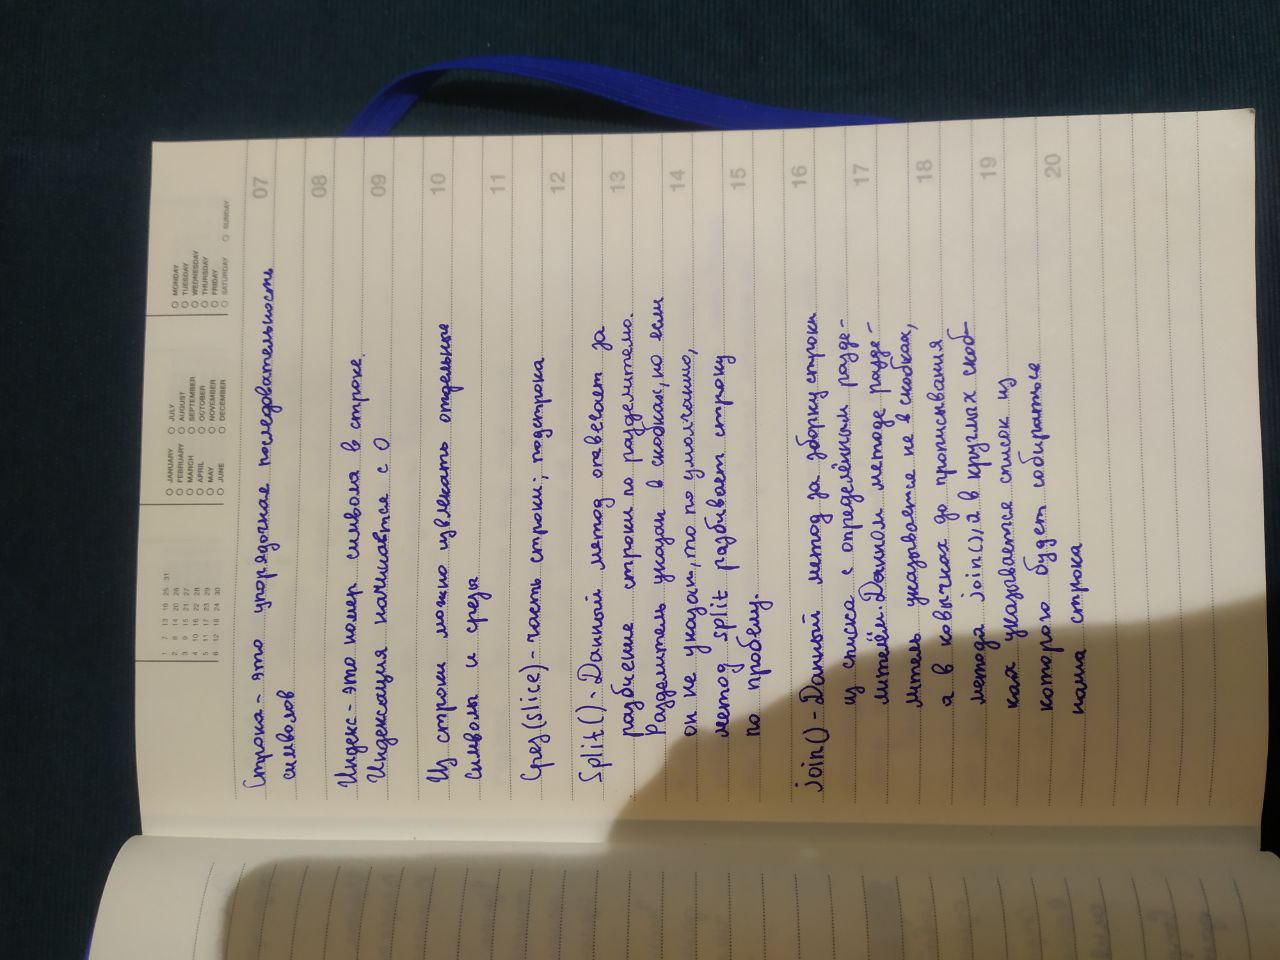 1 7 13 19 25 31
2 8 14 20 26
3 9 15 21 27
4 10 16 22 28
5 11 17 23 29
6 12 18 24 30
JANUARY JULY
FEBRUARY AUGUST
MARCH SEPTEMBER
APRIL OCTOBER
MAY NOVEMBER
JUNE DECEMBER
MONDAY
TUESDAY
WEDNESDAY
THURSDAY
FRIDAY
SATURDAY SUNDAY
07
08
09
10
11
12
13
14
15
16
17
18
19
20
Строка - это упорядочная последовательность
символов
Индекс - это номер символа в строке.
Индексация начинается с 0
Из строки можно извлекать отдельные
символы и срезы
Срез (slice) - часть строки; подстрока
Split() - Данный метод отвечает за
разбиение строки по разделителю.
Разделитель указан в скобках, но если
он не указан, то по умолчанию,
метод split разбивает строку
по пробелу.
join() - Данный метод за зборку строки
из списка с определённым разде-
лителем. Данном методе разде-
литель указывается не в скобках,
а в ковычках до прописывания
метода join(), а в круглых скоб-
ках указывается список из
которого будет собираться
наша строка